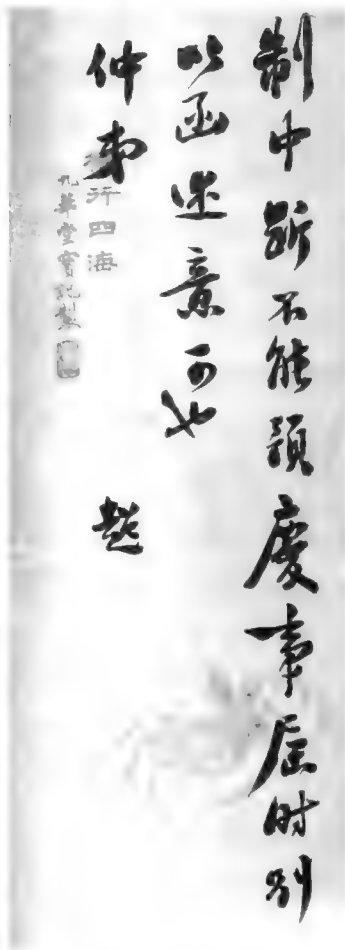 制中斷不能預慶事屆時別
以函述意可也
仲弟
超
行四海
九華堂寶記製